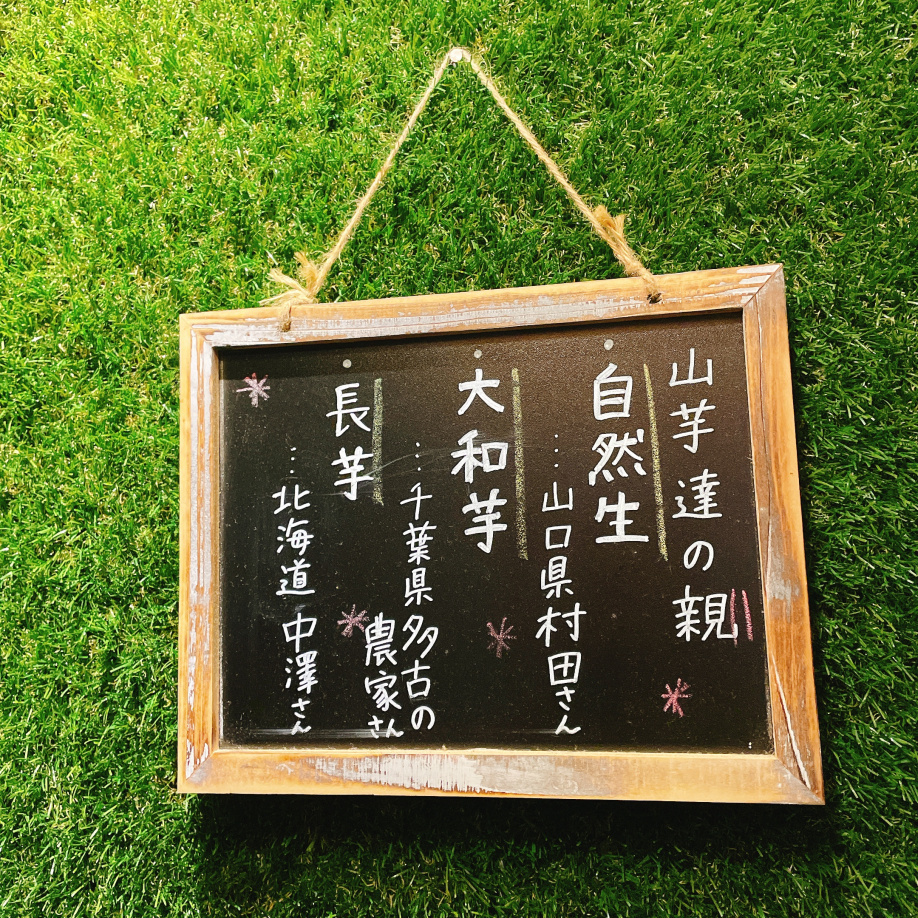 山芋達の親
自然生
…山口県村田さん
大和芋
…千葉県多古の
農家さん
長芋
…北海道中澤さん